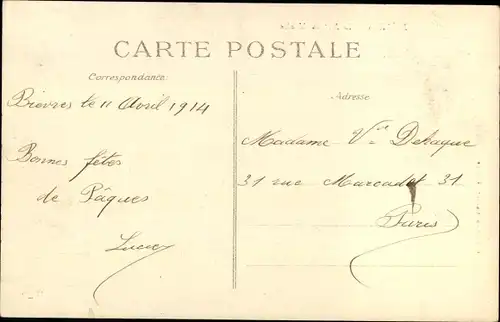 CARTE POSTALE
Correspondance
Adresse
Bièvres le 11 Avril 1914
Bonnes fêtes
de Pâques
Lucie
Madame Vve Delaque
31 rue Marcadet 31
Paris